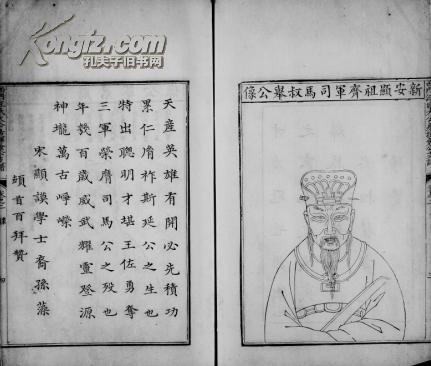 Kongfz.com
孔夫子旧书网
新安顯祖齊軍司馬叔舉公像
天產英雄有開必先積功
累仁膺祚斯延公之生也
特出聰明才堪王佐勇奪
三軍榮膺司馬公之歿也
年發百歲威武耀靈登源
神壠萬古崢嶸
宋顯謨學士裔孫藻
頓首百拜贊